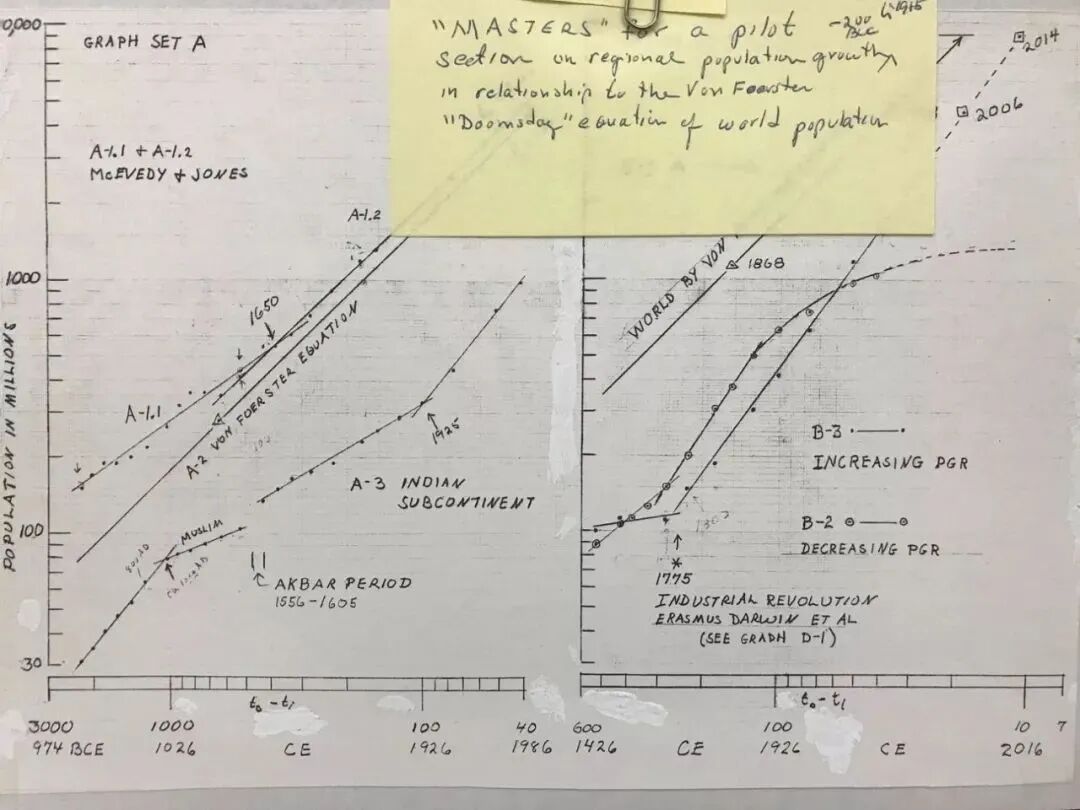 "MASTERS" for a pilot
section on regional population growth
in relationship to the Von Foerster
"Doomsday" equation of world population
-200
BCE
0,000
GRAPH SET A
A-1.1 + A-1.2
McEVEDY + JONES
A-1.2
1000
1650
A-1.1
A-2 VON FOERSTER EQUATION
1925
A-3 INDIAN
SUBCONTINENT
100
MUSLIM
AKBAR PERIOD
1556-1605
30
POPULATION IN MILLIONS
t₀ - t₁
3000 1000 100 40
974 BCE 1026 CE 1926 1986
2014
2006
WORLD BY VON
1868
B-3
INCREASING PGR
B-2
DECREASING PGR
*
1775
INDUSTRIAL REVOLUTION
ERASMUS DARWIN ET AL
(SEE GRAPH D-1)
t₀ - t₁
600 100 10 7
1426 CE 1926 CE 2016